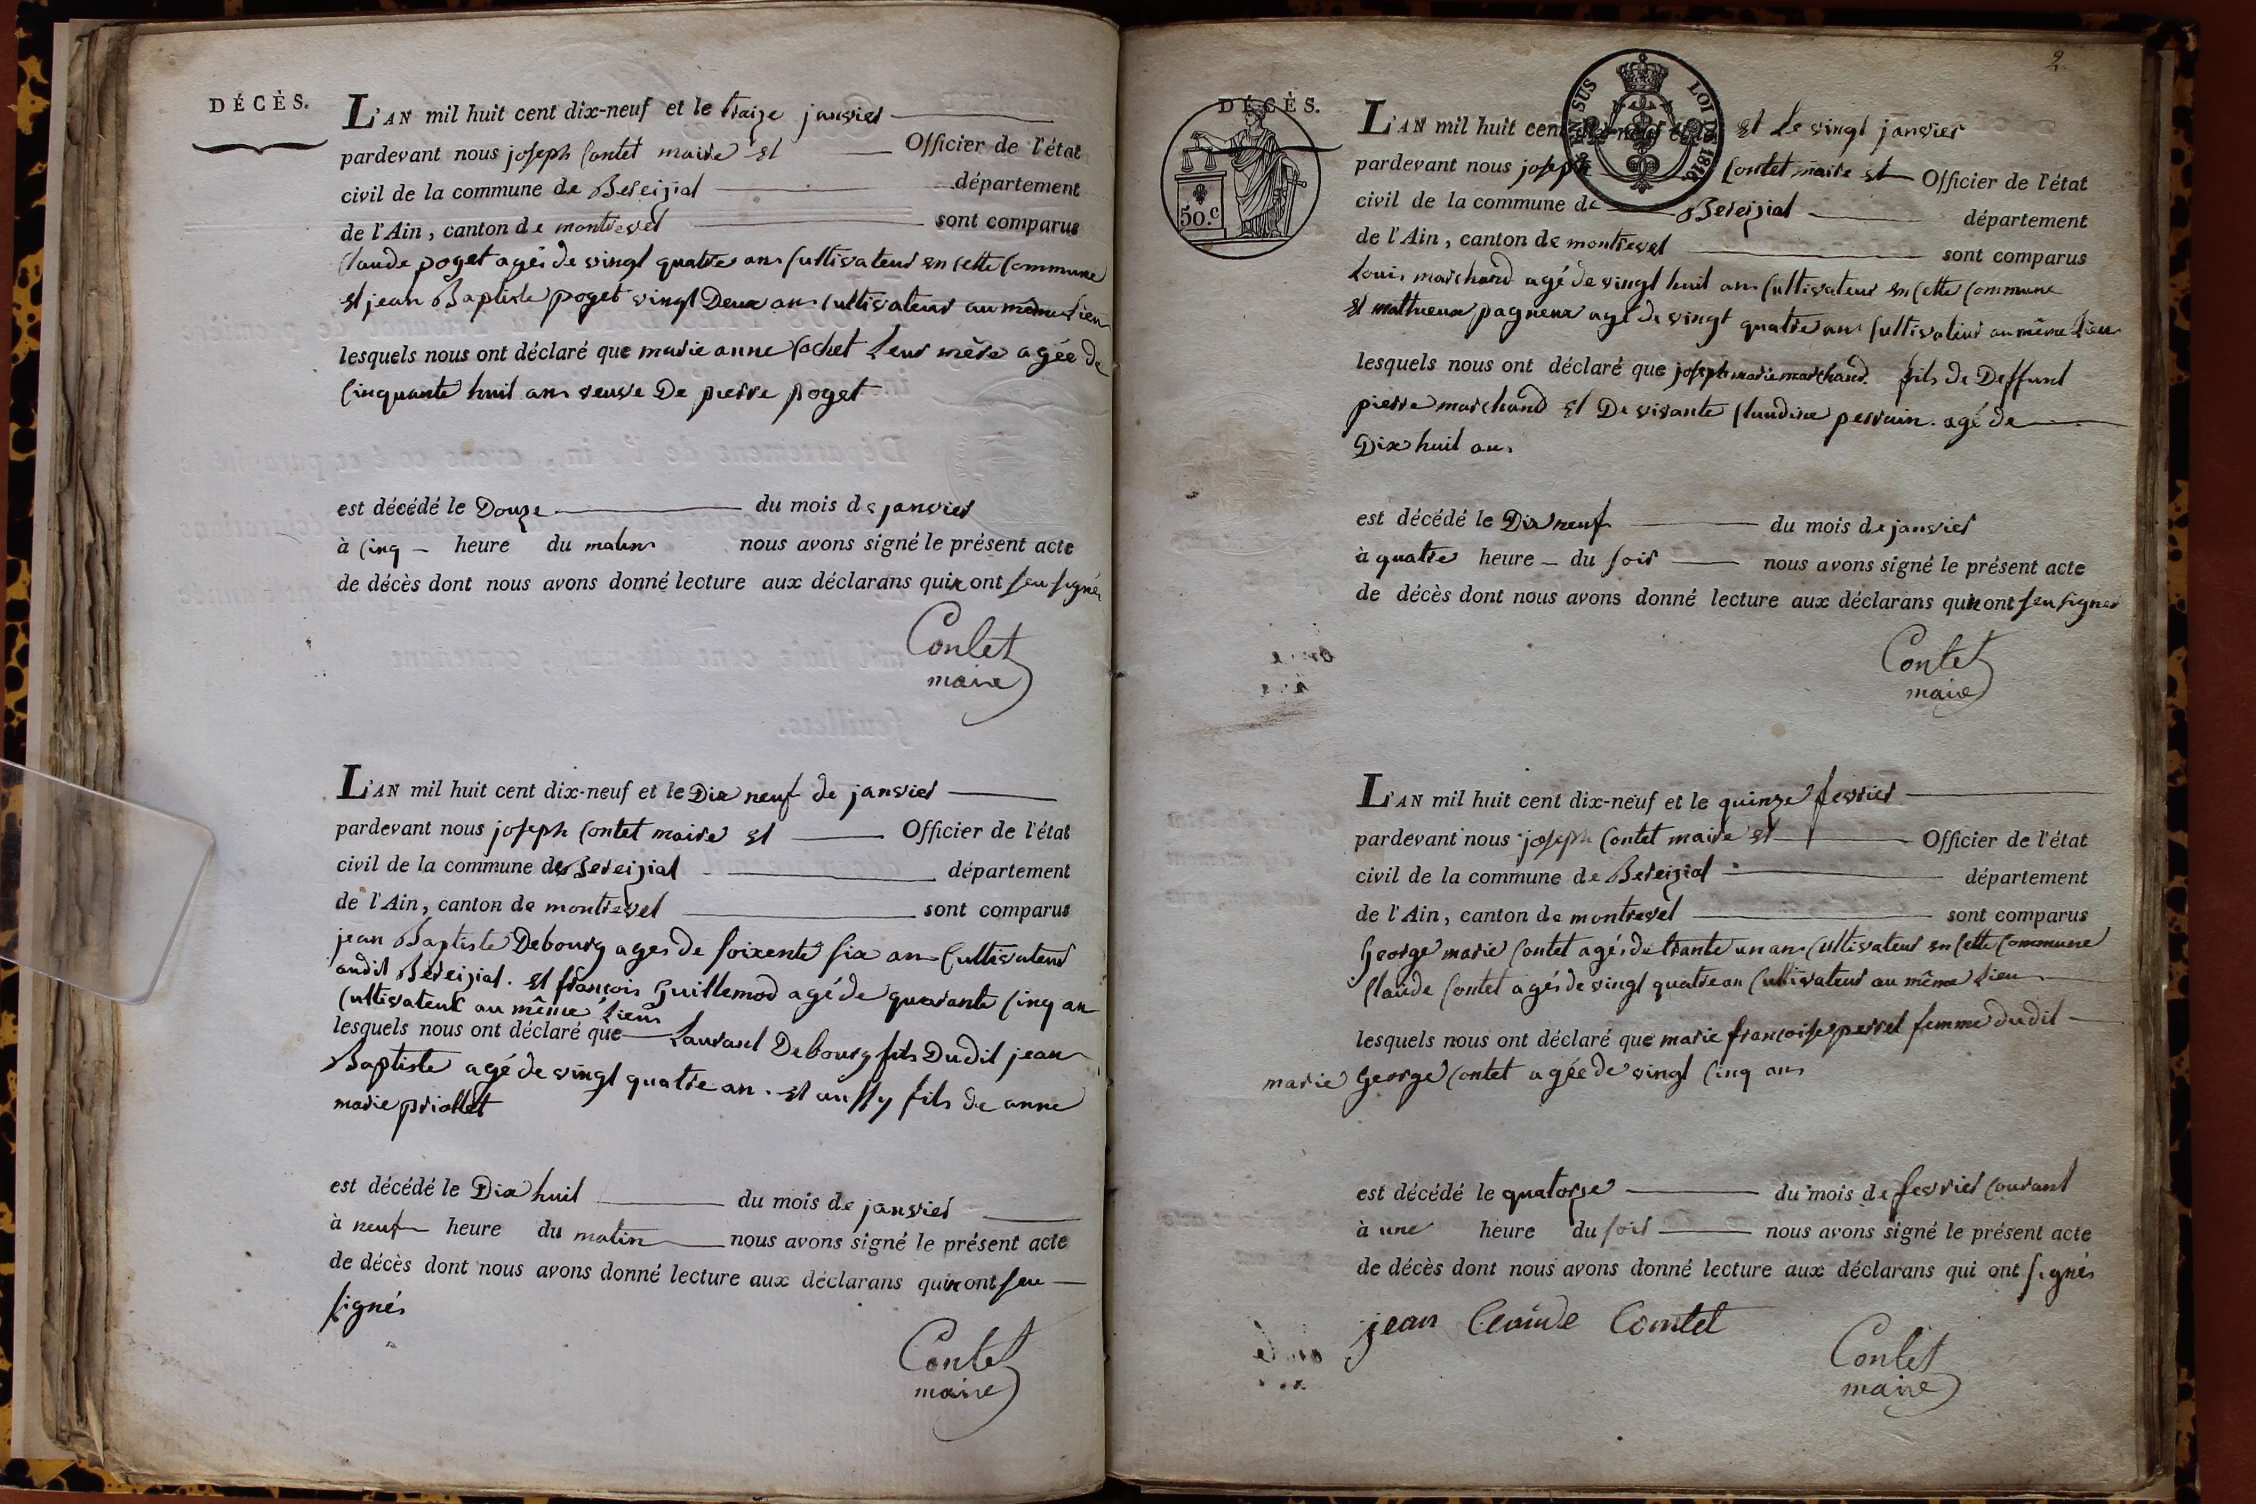 DÉCÈS.
L'AN mil huit cent dix-neuf et le traize janvier
pardevant nous joseph Contet maire et Officier de l'état
civil de la commune de Bereizial département
de l'Ain, canton de montrevel sont comparus
Claude poget agés de vingt quatre ans Cultivateur en cette Commune
et jean Baptiste poget vingt Deux ans Cultivateur au même Lieu
lesquels nous ont déclaré que marie anne Cochet Leur mère agée de
Cinquante huit ans veuve De pierre poget
est décédé le Douze du mois de janvier
à Cinq heure du matin nous avons signé le présent acte
de décès dont nous avons donné lecture aux déclarans qui n ont seu signés
Contet
maire
L'AN mil huit cent dix-neuf et le Dix neuf de janvier
pardevant nous joseph Contet maire et Officier de l'état
civil de la commune de Bereizial département
de l'Ain, canton de montrevel sont comparus
jean Baptiste Debourg ages de soixente six ans Cultivateur
audit Bereizial. et françois Guillemod agé de quarante Cinq an
Cultivateur au même Lieu
lesquels nous ont déclaré que Laurant Debourg fils Dudit jean
Baptiste agé de vingt quatre an. et aussy fils de anne
marie priollet
est décédé le Dix huit du mois de janvier
à neuf heure du matin nous avons signé le présent acte
de décès dont nous avons donné lecture aux déclarans qui n ont seu
signés
Contet
maire
2.
DÉCÈS.
EN SUS LOI DE 1816
50.c
L'AN mil huit cent dix-neuf et le et Le vingt janvier
pardevant nous joseph Contet maire et Officier de l'état
civil de la commune de Bereizial département
de l'Ain, canton de montrevel sont comparus
Louis marchand agé de vingt huit ans Cultivateur en Cette Commune
et mathieux pagneux agé de vingt quatre ans Cultivateur au même Lieu
lesquels nous ont déclaré que joseph marie marchand. fils de Deffunt
pierre marchand et De vivante Claudine perrain. agé de
Dix huit ans
est décédé le Dix neuf du mois de janvier
à quatre heure du soir nous avons signé le présent acte
de décès dont nous avons donné lecture aux déclarans qui n ont seu signer
Contet
maire
L'AN mil huit cent dix-neuf et le quinze fevrier
pardevant nous joseph Contet maire et Officier de l'état
civil de la commune de Bereizial département
de l'Ain, canton de montrevel sont comparus
George marie Contet agés de trante un ans Cultivateur en Cette Commune
Claude Contet agés de vingt quatre an Cultivateur au même Lieu
lesquels nous ont déclaré que marie françoise perret femme dudit
marie George Contet agée de vingt Cinq ans
est décédé le quatorze du mois de fevrier Courant
à une heure du soir nous avons signé le présent acte
de décès dont nous avons donné lecture aux déclarans qui ont signés
jean Claude Comtet
Contet
maire